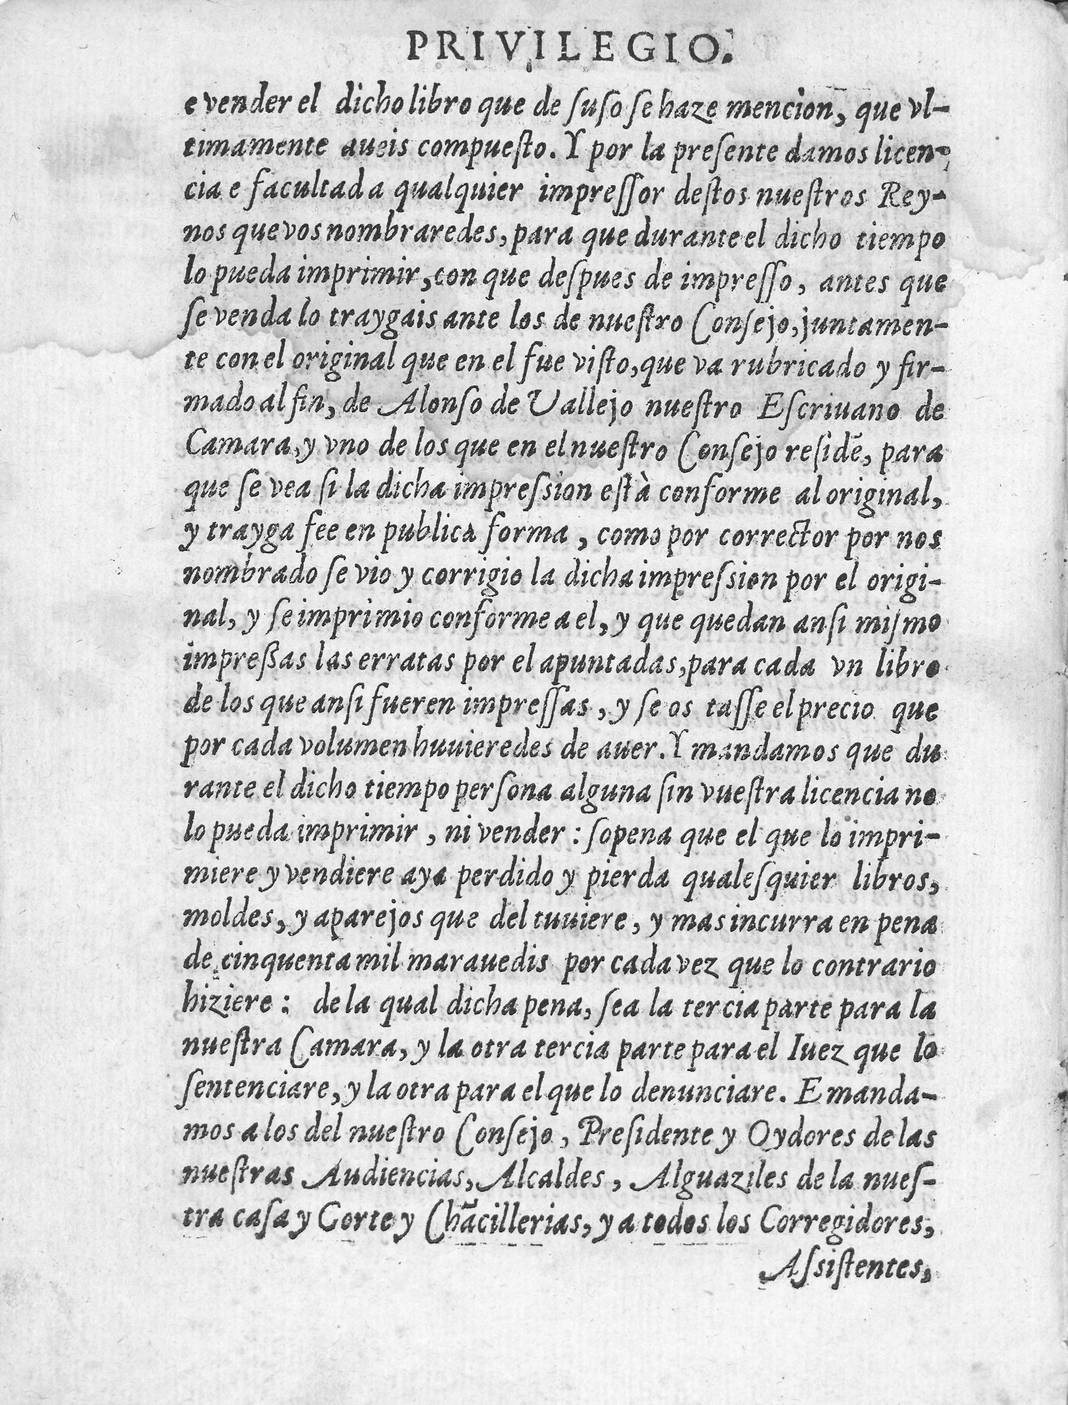 PRIVILEGIO.
e vender el dicho libro que de ſuſo ſe haze mencion, que vl-
timamente aueis compueſto. Y por la preſente damos licen-
cia e facultad a qualquier impreſſor deſtos nueſtros Rey-
nos que vos nombraredes, para que durante el dicho tiempo
lo pueda imprimir, con que deſpues de impreſſo, antes que
ſe venda lo traygais ante los de nueſtro Conſejo, juntamen-
te con el original que en el fue viſto, que va rubricado y fir-
mado al fin, de Alonſo de Vallejo nueſtro Eſcriuano de
Camara, y vno de los que en el nueſtro Conſejo reſidē, para
que ſe vea ſi la dicha impreſsion eſtà conforme al original,
y trayga fee en publica forma, como por corrector por nos
nombrado ſe vio y corrigio la dicha impreſsion por el origi-
nal, y ſe imprimio conforme a el, y que quedan anſi miſmo
impreßas las erratas por el apuntadas, para cada vn libro
de los que anſi fueren impreſſas, y ſe os taſſe el precio que
por cada volumen huuieredes de auer. Y mandamos que du
rante el dicho tiempo perſona alguna ſin vueſtra licencia no
lo pueda imprimir, ni vender: ſopena que el que lo impri-
miere y vendiere aya perdido y pierda qualeſquier libros,
moldes, y aparejos que del tuuiere, y mas incurra en pena
de cinquenta mil marauedis por cada vez que lo contrario
hiziere: de la qual dicha pena, ſea la tercia parte para la
nueſtra Camara, y la otra tercia parte para el Iuez que lo
ſentenciare, y la otra para el que lo denunciare. E manda-
mos a los del nueſtro Conſejo, Preſidente y Oydores de las
nueſtras Audiencias, Alcaldes, Alguaziles de la nueſ-
tra caſa y Corte y Chācillerias, y a todos los Corregidores,
Aſsiſtentes,